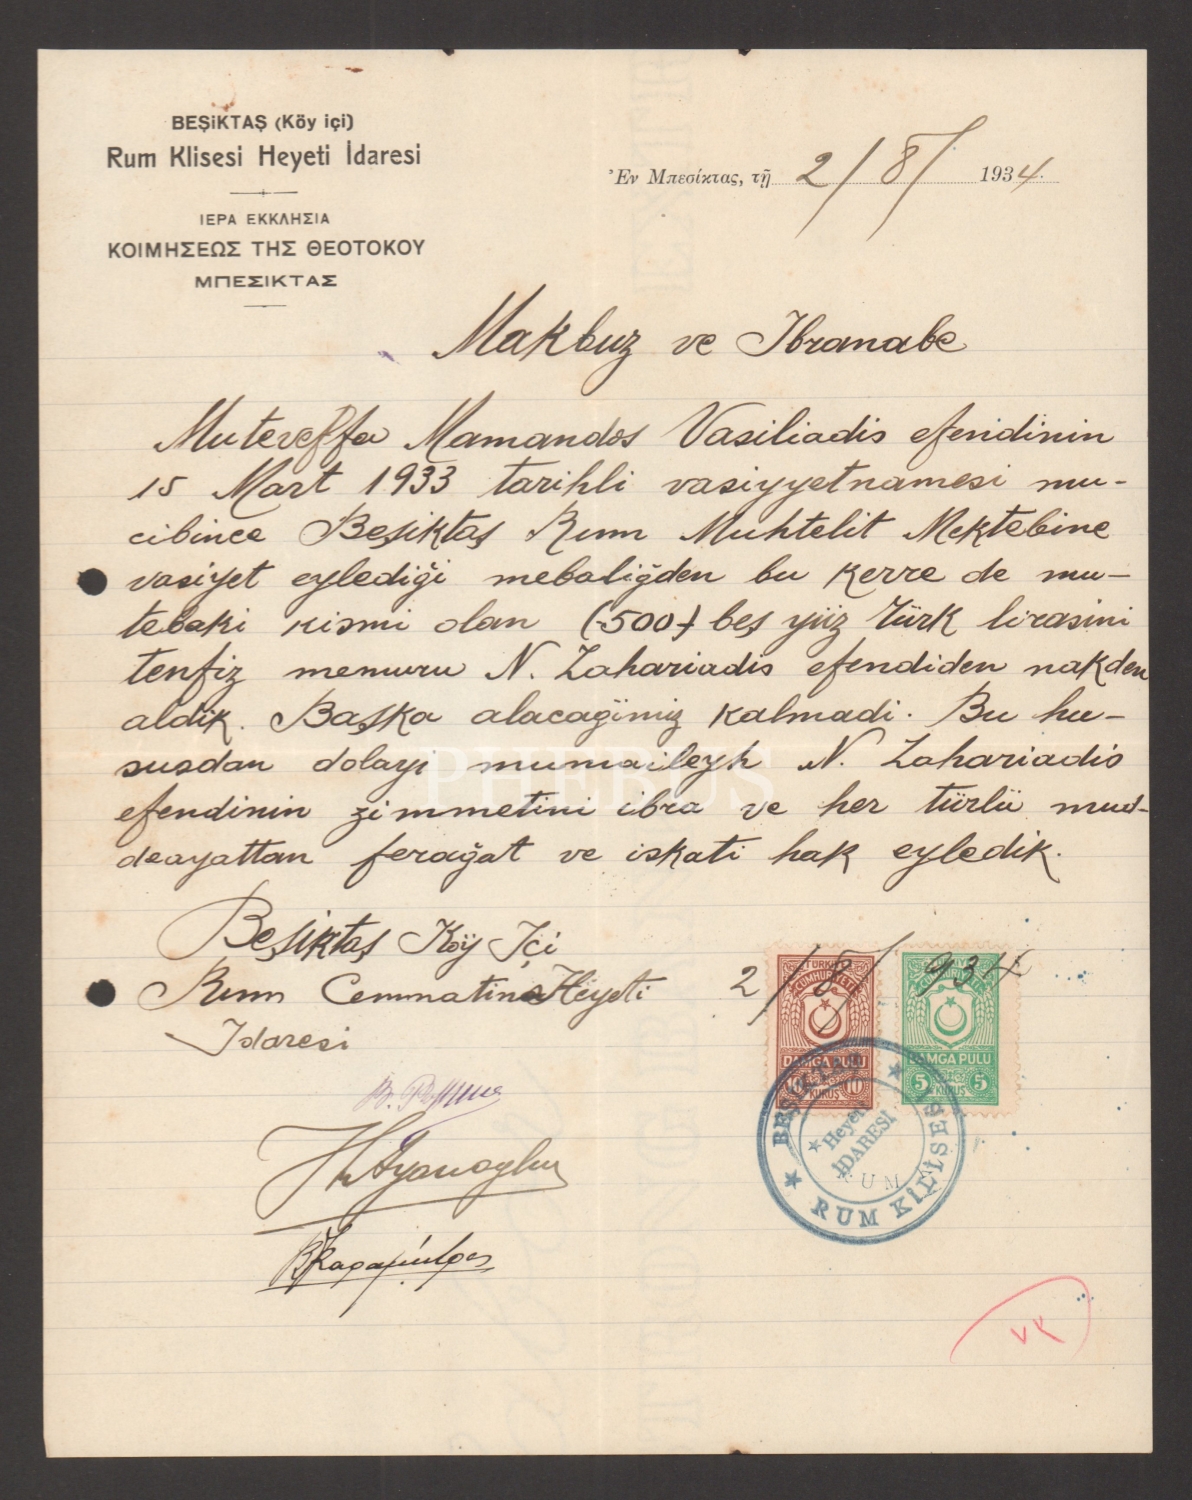 BEŞiKTAŞ (Köy içi)
Rum Klisesi Heyeti İdaresi
ΙΕΡΑ ΕΚΚΛΗΣΙΑ
ΚΟΙΜΗΣΕΩΣ ΤΗΣ ΘΕΟΤΟΚΟΥ
ΜΠΕΣΙΚΤΑΣ
Ἐν Μπεσίκτας, τῇ 2/8/ 1934.
Makbuz ve Ibranabe
Muteveffa Mamandos Vasiliadis efendinin
15 Mart 1933 tarihli vasiyyetnamesi mu-
cibince Beşiktaş Rum Muhtelit Mektebine
vasiyet eylediği mebaliğden bu kerre de mu-
tebaki kismi olan (500) beş yüz Türk lirasini
tenfiz memuru N. Zahariadis efendiden nakden
aldik. Başka alacağimiz kalmadi. Bu hu-
susdan dolayi mumaileyh N. Zahariadis
efendinin zimmetini ibra ve her türlü mud-
deayattan ferağat ve iskati hak eyledik.
Beşiktaş Köy Içi
Rum Cemmatin Heyeti
Idaresi
2/8/934
TÜRKİYE CUMHURİYETİ
DAMGA PULU
10 10
KURUŞ
CUMHURİYETİ
DAMGA PULU
5 5
KURUŞ
BEŞİKTAŞ
RUM KİLİSESİ
Heyeti
İDARESİ
RUM
PHEBUS